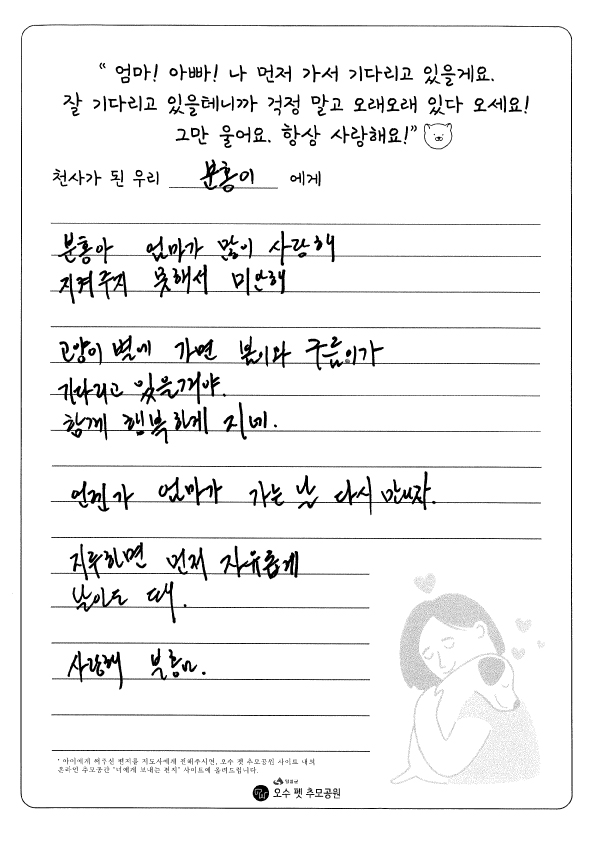 “ 엄마! 아빠! 나 먼저 가서 기다리고 있을게요.
잘 기다리고 있을테니까 걱정 말고 오래오래 있다 오세요!
그만 울어요. 항상 사랑해요!”
천사가 된 우리 분홍이 에게
분홍아 엄마가 많이 사랑해
지켜주지 못해서 미안해
고양이 별에 가면 봄이와 구름이가
기다리고 있을거야.
함께 행복하게 지내.
언젠가 엄마가 가는 날 다시 만나자.
지루하면 먼저 자유롭게
날아도 돼.
사랑해 분홍아.
* 아이에게 써주신 편지를 지도사에게 전해주시면, 오수 펫 추모공원 사이트 내의
온라인 추모공간 "너에게 보내는 편지" 사이트에 올려드립니다.
임실군
오수 펫 추모공원